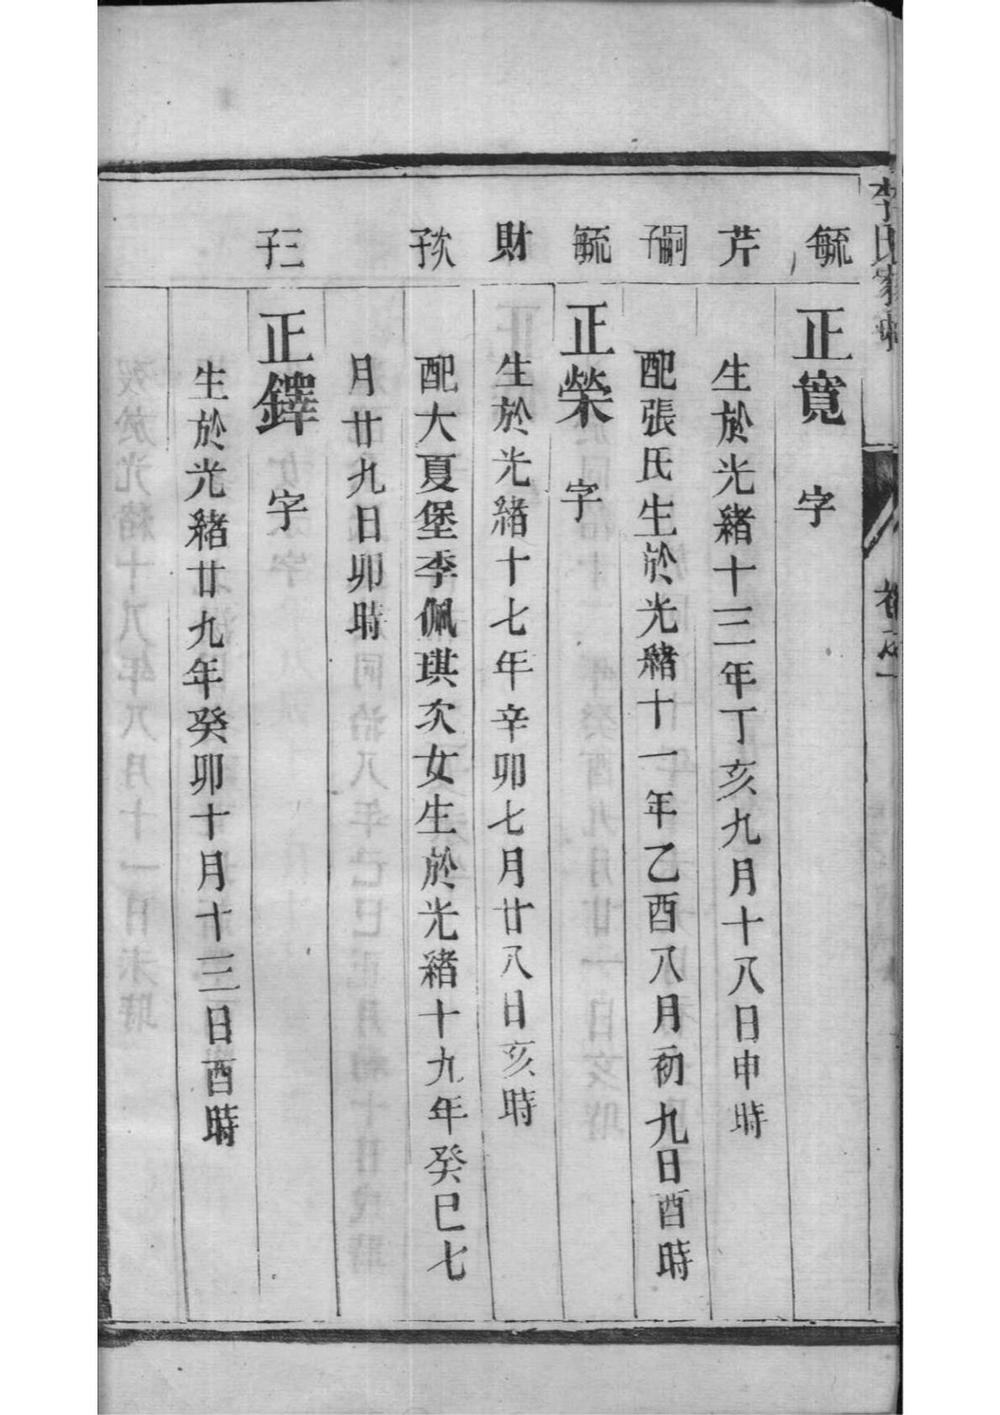 李氏家
毓
正寬 字
芹
生於光緒十三年丁亥九月十八日申時
嗣子
配張氏生於光緒十一年乙酉八月初九日酉時
毓
正榮 字
財
生於光緒十七年辛卯七月廿八日亥時
次子
配大夏堡李佩琪次女生於光緒十九年癸巳七
月廿九日卯時
三子
正鐸 字
生於光緒廿九年癸卯十月十三日酉時